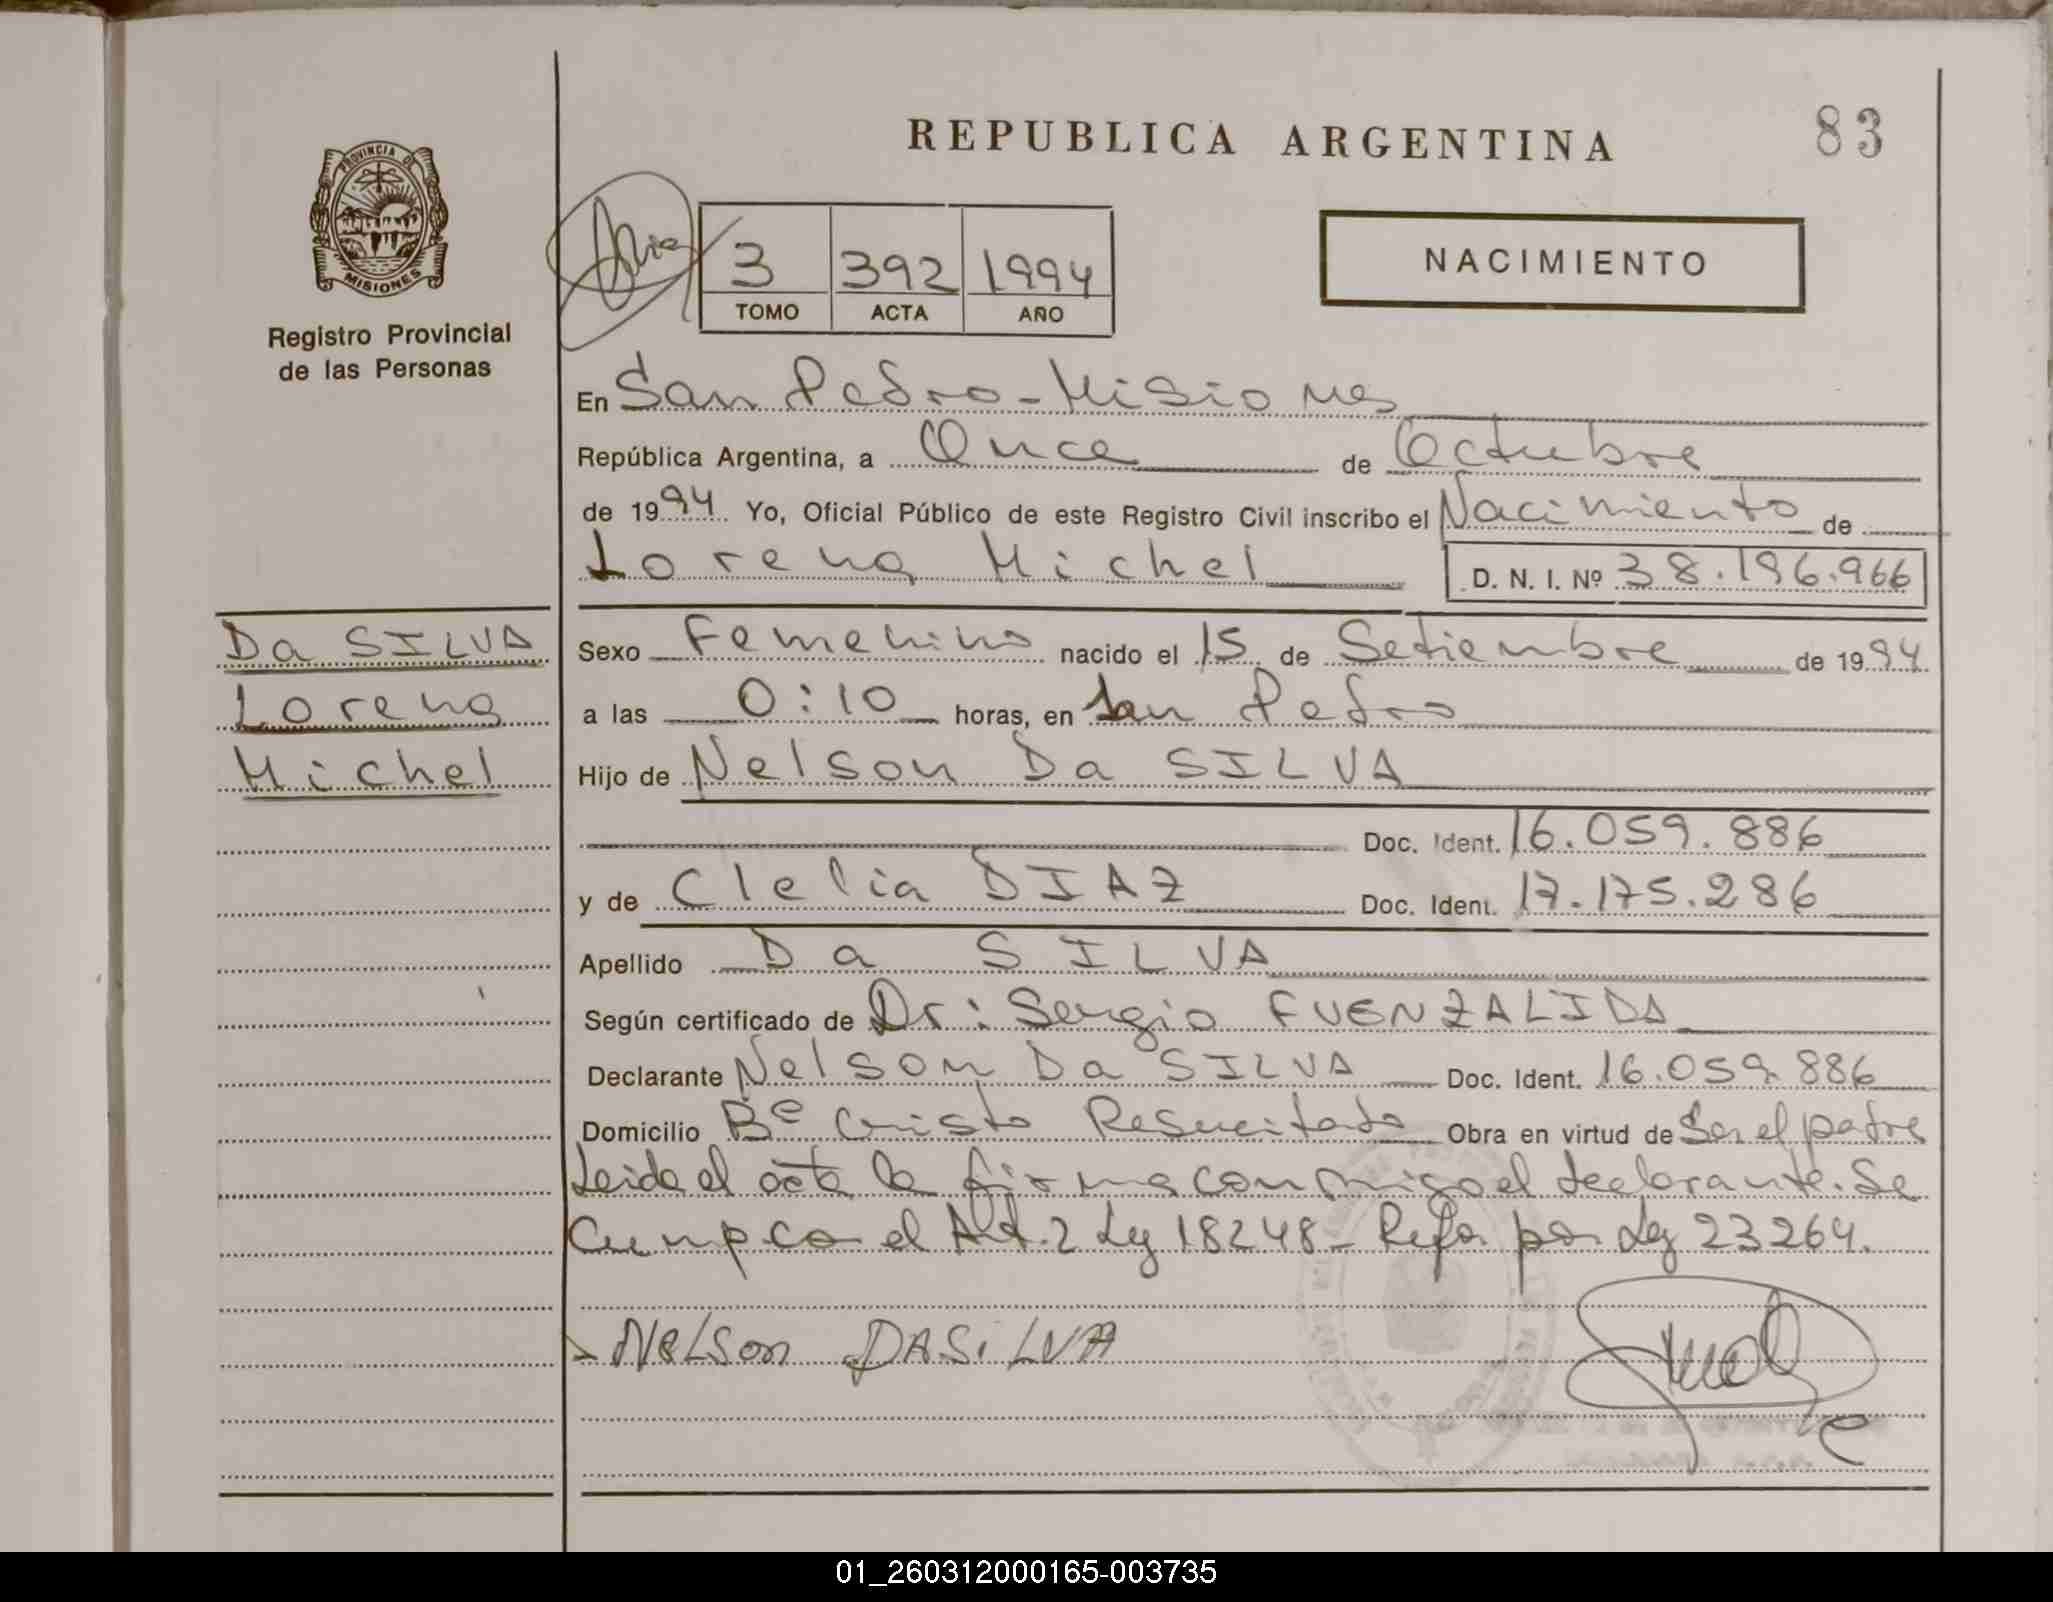 REPUBLICA ARGENTINA
83
PROVINCIA DE
MISIONES
Registro Provincial
de las Personas
3 392 1994
TOMO ACTA AÑO
NACIMIENTO
En San Pedro - Misiones
República Argentina, a Once de Octubre
de 1994 Yo, Oficial Público de este Registro Civil inscribo el Nacimiento de
Lorena Michel D. N. I. Nº 38.196.966
Da SILVA
Lorena
Michel
Sexo Femenino nacido el 15 de Setiembre de 1994
a las 0:10 horas, en San Pedro
Hijo de Nelson Da SILVA
Doc. Ident. 16.059.886
y de Clelia DIAZ Doc. Ident. 17.175.286
Apellido Da SILVA
Según certificado de Dr: Sergio FUENZALIDA
Declarante Nelson Da SILVA Doc. Ident. 16.059.886
Domicilio Bº Cristo Resucitado Obra en virtud de Ser el padre
Leida el acta la firma conmigo el declarante. Se
Cumpco el Art. 2 Ley 18248 - Refo por Ley 23264.
Nelson DASiLVA
01_260312000165-003735